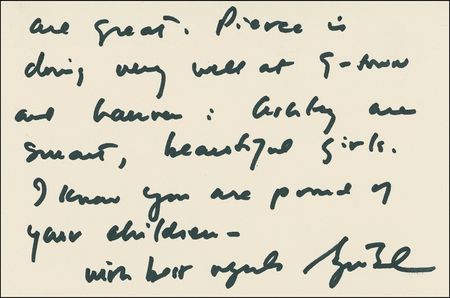 are great. Pierce is
doing very well at G-town
and Lauren & Ashley are
smart, beautiful girls.
I know you are proud of
your children -
with best regards